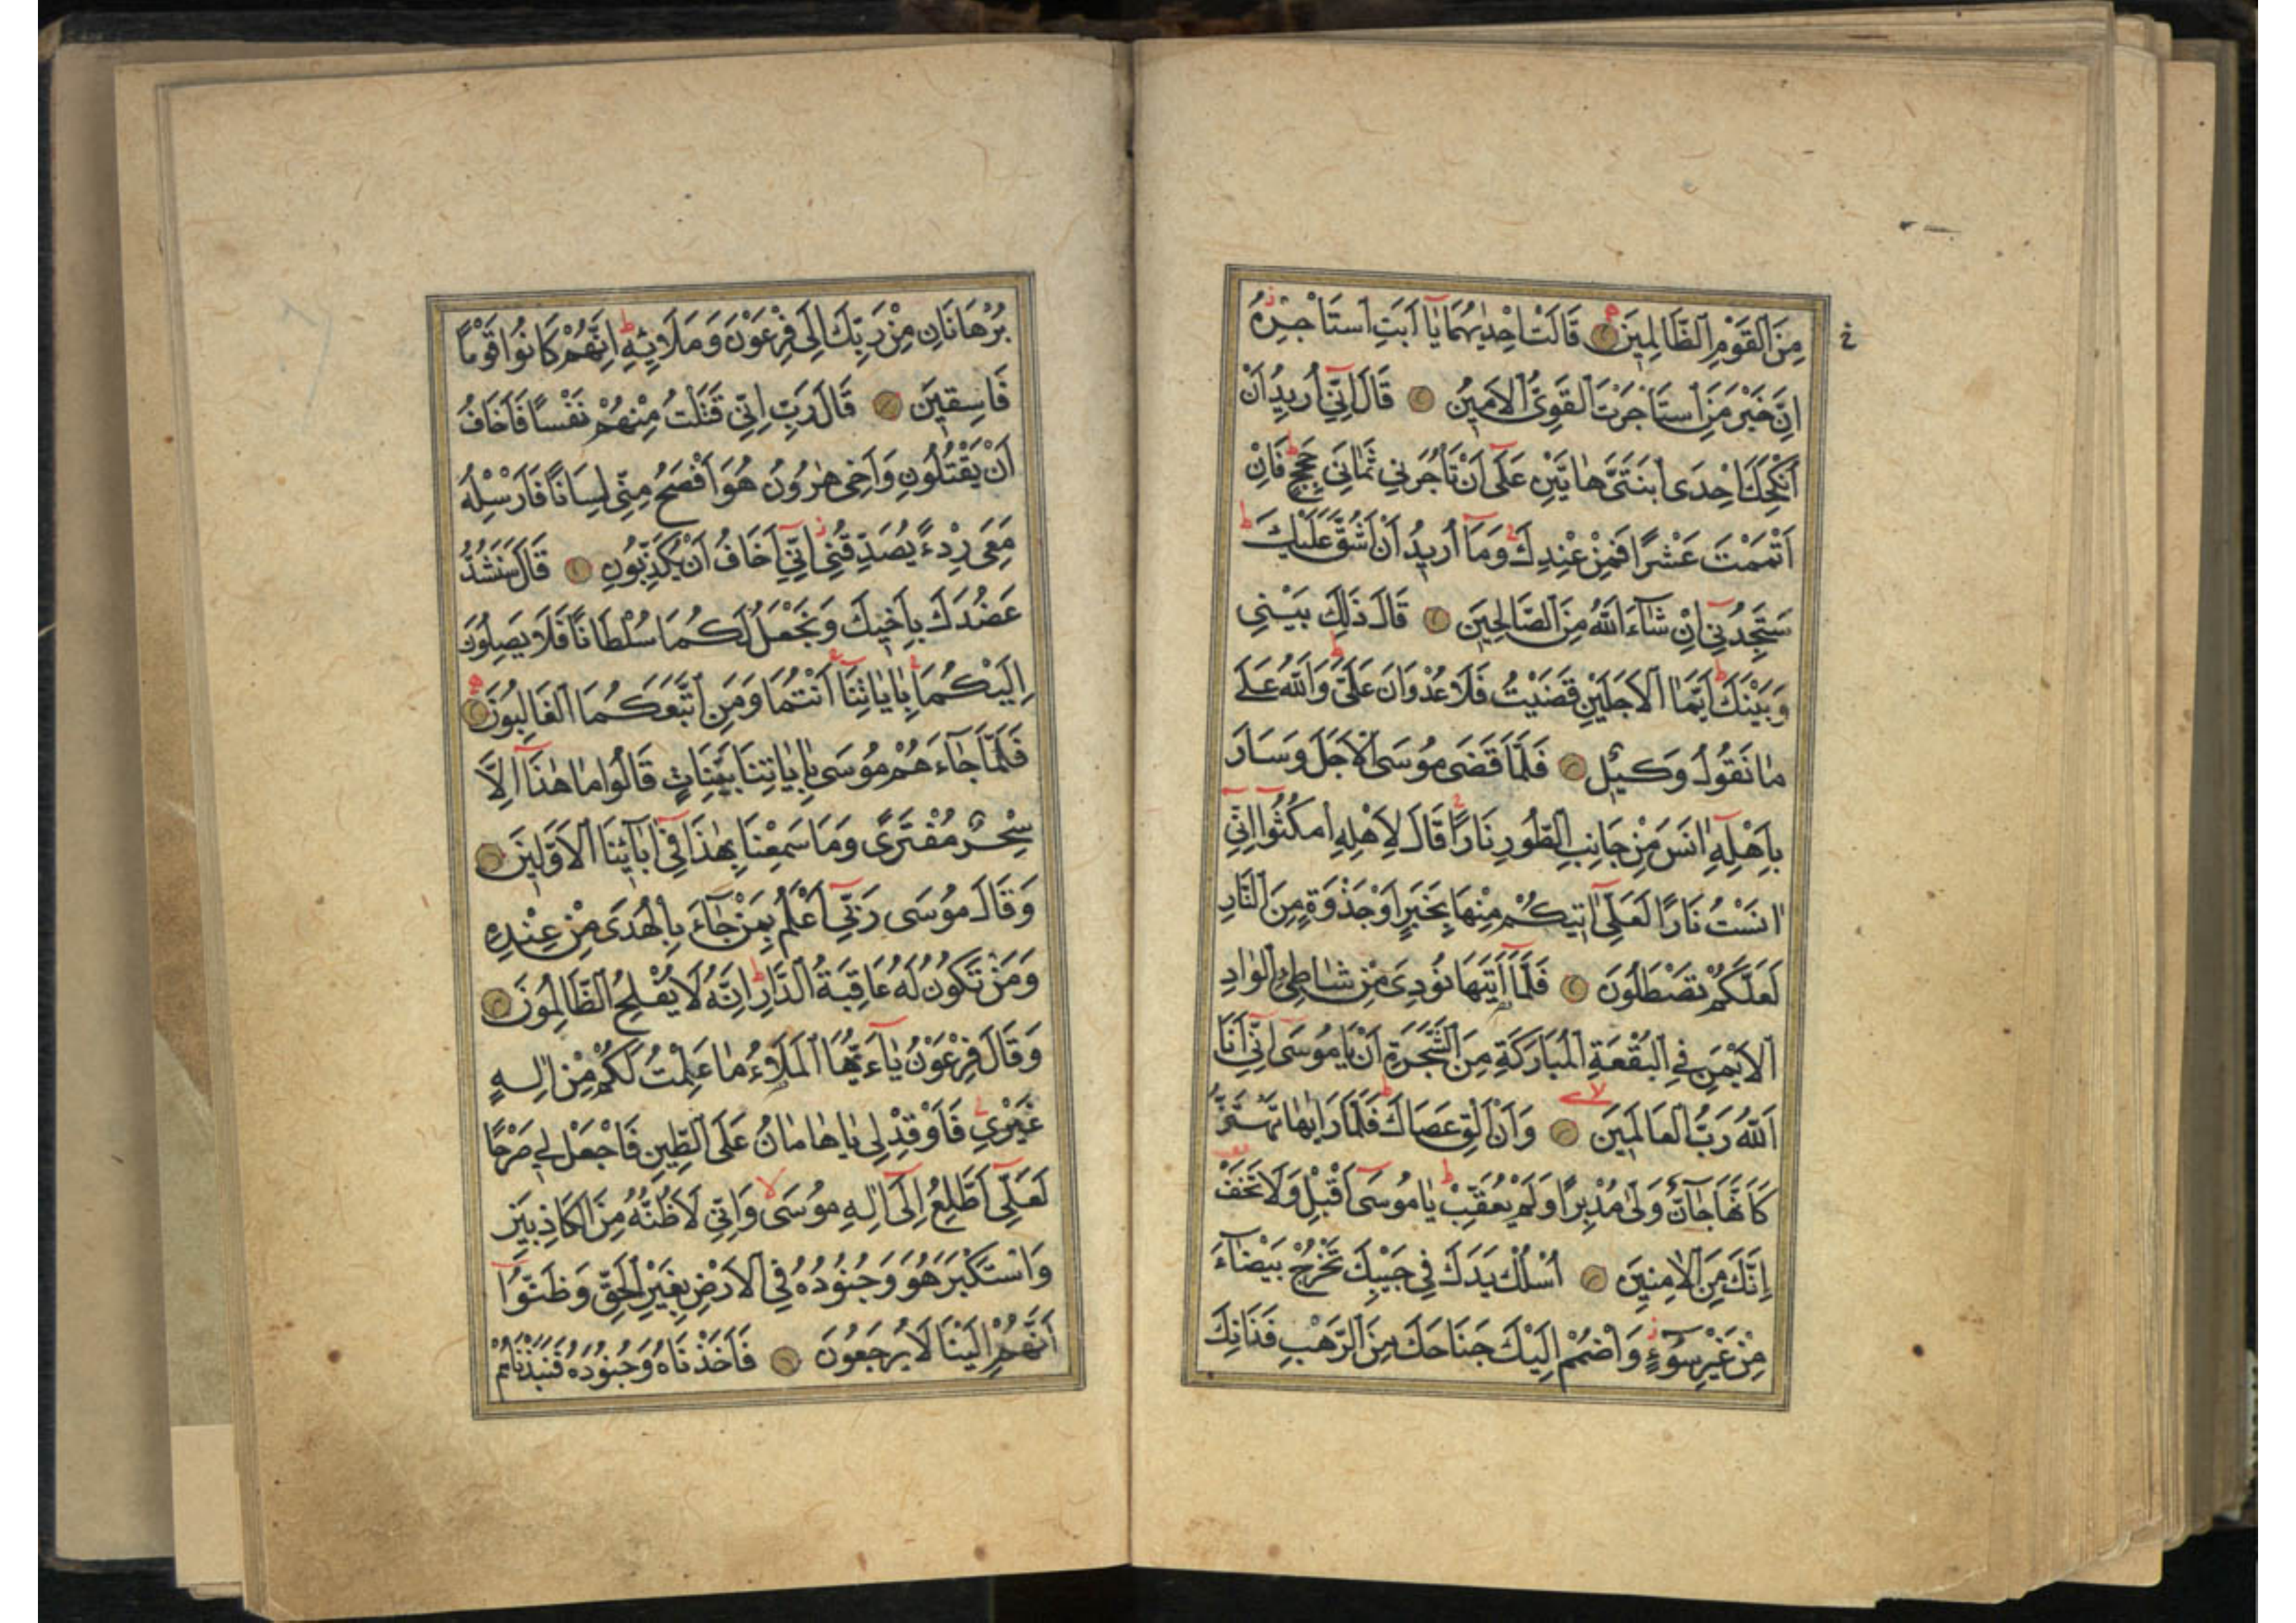 مِنَ الْقَوْمِ الظَّالِمِينَ قَالَتْ اِحْدٰيهُمَا يَا اَبَتِ اسْتَاْجِرْهُ
اِنَّ خَيْرَ مَنِ اسْتَاْجَرْتَ الْقَوِىُّ الْاَمِينُ قَالَ اِنِّىٓ اُرِيدُ اَنْ
اُنْكِحَكَ اِحْدَى ابْنَتَىَّ هَاتَيْنِ عَلٰٓى اَنْ تَاْجُرَنِى ثَمَانِىَ حِجَجٍ فَاِنْ
اَتْمَمْتَ عَشْرًا فَمِنْ عِنْدِكَ وَمَآ اُرِيدُ اَنْ اَشُقَّ عَلَيْكَ
سَتَجِدُنِىٓ اِنْ شَآءَ اللّٰهُ مِنَ الصَّالِحِينَ قَالَ ذٰلِكَ بَيْنِى
وَبَيْنَكَ اَيَّمَا الْاَجَلَيْنِ قَضَيْتُ فَلَا عُدْوَانَ عَلَىَّ وَاللّٰهُ عَلٰى
مَا نَقُولُ وَكِيلٌ فَلَمَّا قَضٰى مُوسَى الْاَجَلَ وَسَارَ
بِاَهْلِهٓ اٰنَسَ مِنْ جَانِبِ الطُّورِ نَارًا قَالَ لِاَهْلِهِ امْكُثُوٓا اِنِّىٓ
اٰنَسْتُ نَارًا لَعَلِّىٓ اٰتِيكُمْ مِنْهَا بِخَبَرٍ اَوْ جَذْوَةٍ مِنَ النَّارِ
لَعَلَّكُمْ تَصْطَلُونَ فَلَمَّآ اَتٰيهَا نُودِىَ مِنْ شَاطِئِ الْوَادِ
الْاَيْمَنِ فِى الْبُقْعَةِ الْمُبَارَكَةِ مِنَ الشَّجَرَةِ اَنْ يَا مُوسٰٓى اِنِّىٓ اَنَا
اللّٰهُ رَبُّ الْعَالَمِينَ وَاَنْ اَلْقِ عَصَاكَ فَلَمَّا رَاٰهَا تَهْتَزُّ
كَاَنَّهَا جَآنٌّ وَلّٰى مُدْبِرًا وَلَمْ يُعَقِّبْ يَا مُوسٰٓى اَقْبِلْ وَلَا تَخَفْ
اِنَّكَ مِنَ الْاٰمِنِينَ اُسْلُكْ يَدَكَ فِى جَيْبِكَ تَخْرُجْ بَيْضَآءَ
مِنْ غَيْرِ سُوٓءٍ وَاضْمُمْ اِلَيْكَ جَنَاحَكَ مِنَ الرَّهْبِ فَذَانِكَ
بُرْهَانَانِ مِنْ رَبِّكَ اِلٰى فِرْعَوْنَ وَمَلَا۬ئِهِ اِنَّهُمْ كَانُوا قَوْمًا
فَاسِقِينَ قَالَ رَبِّ اِنِّى قَتَلْتُ مِنْهُمْ نَفْسًا فَاَخَافُ
اَنْ يَقْتُلُونِ وَاَخِى هٰرُونُ هُوَ اَفْصَحُ مِنِّى لِسَانًا فَاَرْسِلْهُ
مَعِىَ رِدْءًا يُصَدِّقُنِى اِنِّىٓ اَخَافُ اَنْ يُكَذِّبُونِ قَالَ سَنَشُدُّ
عَضُدَكَ بِاَخِيكَ وَنَجْعَلُ لَكُمَا سُلْطَانًا فَلَا يَصِلُونَ
اِلَيْكُمَا بِاٰيَاتِنَآ اَنْتُمَا وَمَنِ اتَّبَعَكُمَا الْغَالِبُونَ
فَلَمَّا جَآءَهُمْ مُوسٰى بِاٰيَاتِنَا بَيِّنَاتٍ قَالُوا مَا هٰذَآ اِلَّا
سِحْرٌ مُفْتَرًى وَمَا سَمِعْنَا بِهٰذَا فِىٓ اٰبَآئِنَا الْاَوَّلِينَ
وَقَالَ مُوسٰى رَبِّىٓ اَعْلَمُ بِمَنْ جَآءَ بِالْهُدٰى مِنْ عِنْدِهِ
وَمَنْ تَكُونُ لَهُ عَاقِبَةُ الدَّارِ اِنَّهُ لَا يُفْلِحُ الظَّالِمُونَ
وَقَالَ فِرْعَوْنُ يَآءَيُّهَا الْمَلَاُ مَا عَلِمْتُ لَكُمْ مِنْ اِلٰهٍ
غَيْرِى فَاَوْقِدْ لِى يَا هَامَانُ عَلَى الطِّينِ فَاجْعَلْ لِى صَرْحًا
لَعَلِّىٓ اَطَّلِعُ اِلٰٓى اِلٰهِ مُوسٰى وَاِنِّى لَاَظُنُّهُ مِنَ الْكَاذِبِينَ
وَاسْتَكْبَرَ هُوَ وَجُنُودُهُ فِى الْاَرْضِ بِغَيْرِ الْحَقِّ وَظَنُّوٓا
اَنَّهُمْ اِلَيْنَا لَا يُرْجَعُونَ فَاَخَذْنَاهُ وَجُنُودَهُ فَنَبَذْنَاهُمْ